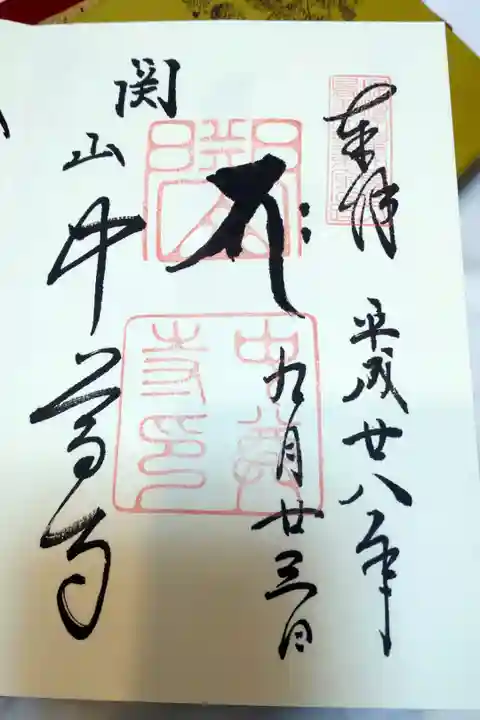 奉拝
平成廿八年
九月廿三日
関山中尊寺
中尊寺印